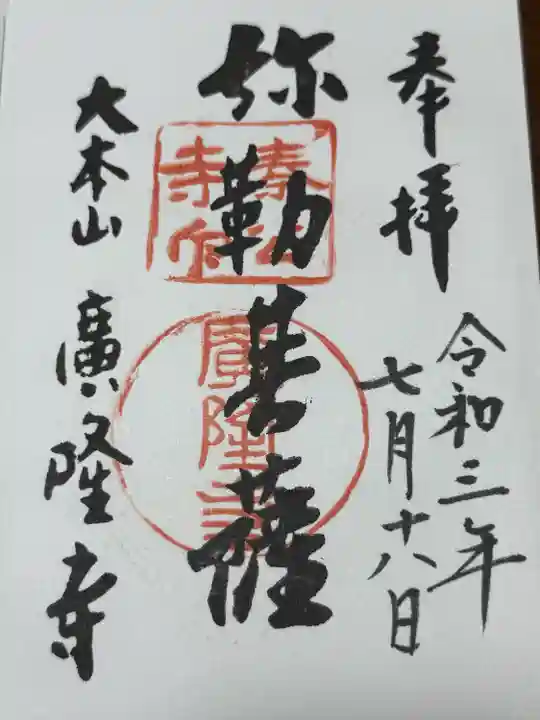 奉拝
令和三年
七月十八日
弥勒菩薩
大本山 廣隆寺
廣隆寺